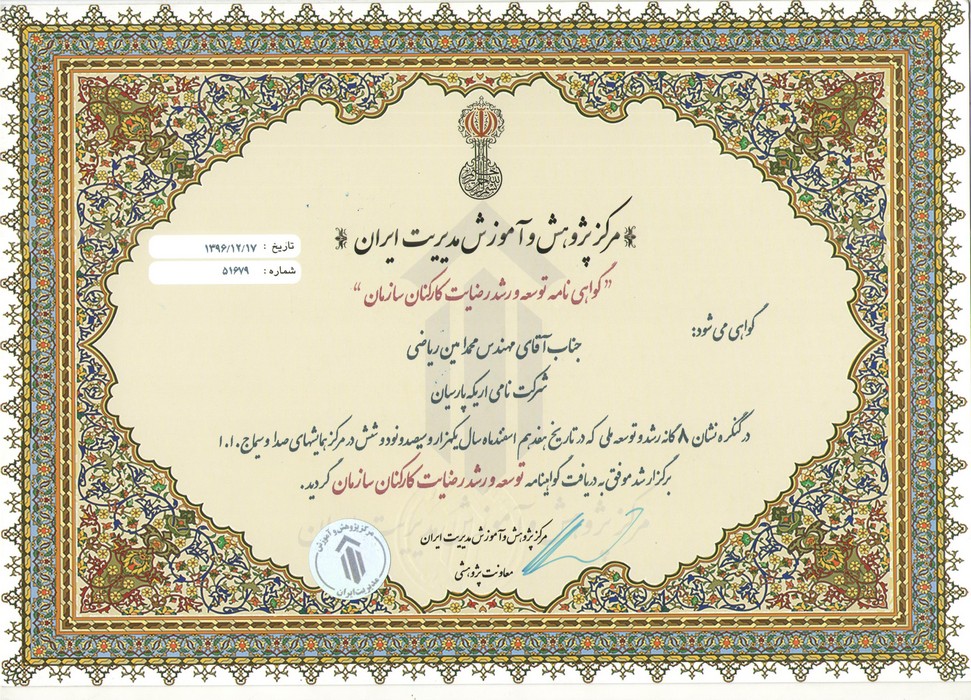 مرکز پژوهش و آموزش مدیریت ایران
تاریخ : ۱۳۹۶/۱۲/۱۷
شماره : ۵۱۶۷۹
"گواهی نامه توسعه و رشد رضایت کارکنان سازمان"
گواهی می شود:
جناب آقای مهندس محمد امین ریاضی
شرکت نامی اریکه پارسیان
در کنگره نشان ۸ گانه رشد و توسعه ملی که در تاریخ هفدهم اسفند ماه سال یکهزار و سیصد و نود و شش در مرکز همایشهای صدا و سیما ج.ا.ا
برگزار شد موفق به دریافت گواهینامه توسعه و رشد رضایت کارکنان سازمان گردید.
مرکز پژوهش و آموزش مدیریت ایران
معاونت پژوهشی
مرکز پژوهش و آموزش
مدیریت ایران